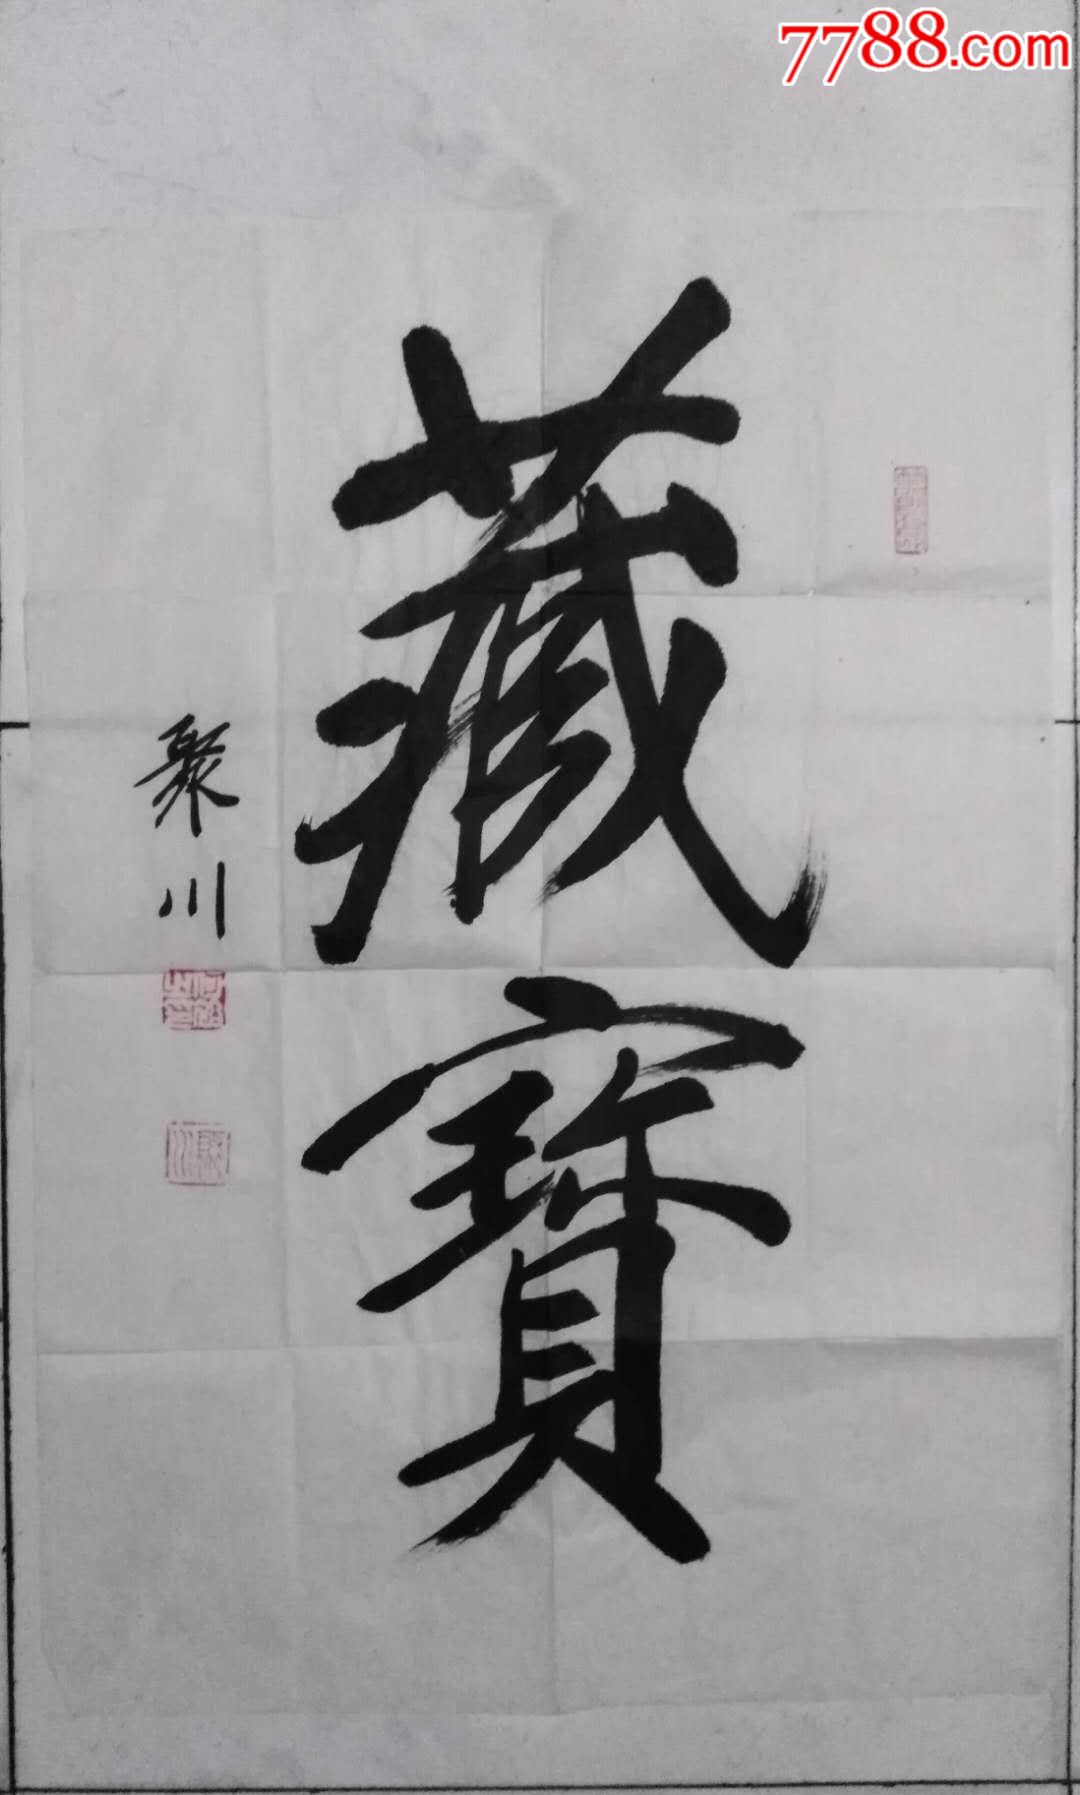 7788.com
藏寶
聚川